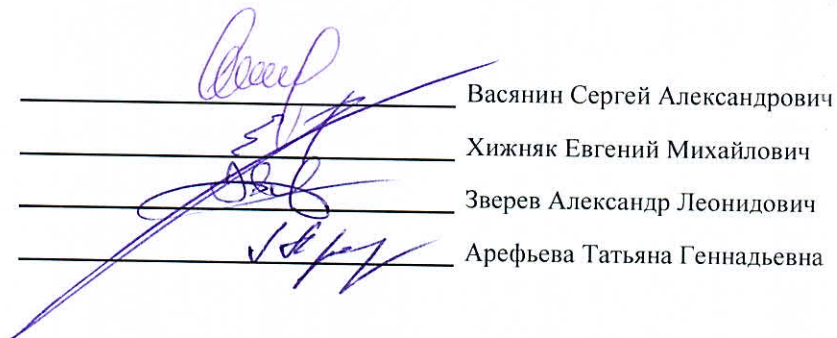 Васянин Сергей Александрович
Хижняк Евгений Михайлович
Зверев Александр Леонидович
Арефьева Татьяна Геннадьевна